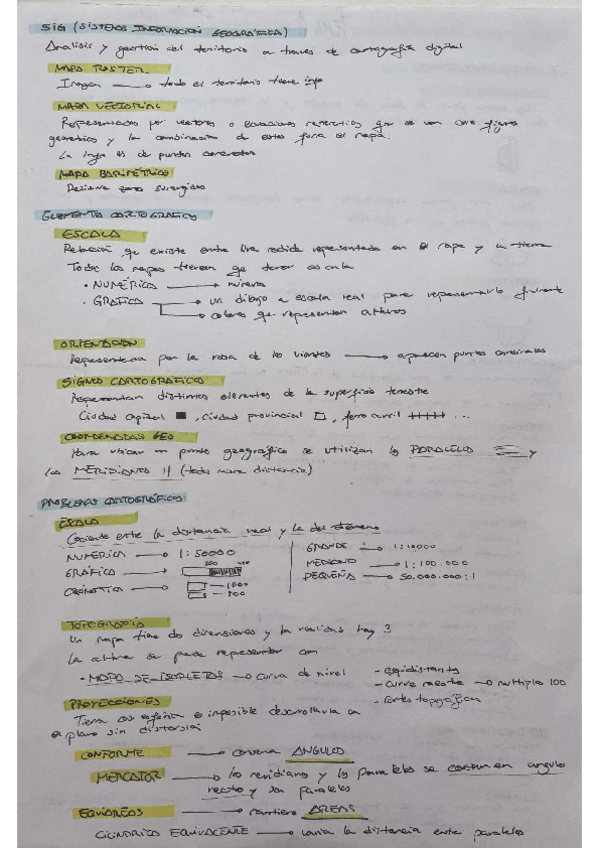 SIG (SISTEMAS INFORMACIÓN GEOGRÁFICA)
Análisis y gestión del territorio a través de cartografía digital
MAPA RASTER
Imagen → todo el territorio tiene info
MAPA VECTORIAL
Representados por vectores o que se ven como figuras
geométricas y la combinación de estas forma el mapa.
La info es de puntos concretos
MAPA BARIMÉTRICO
Relieve zonas sumergidas
ELEMENTO CARTOGRÁFICO
ESCALA
Relación que existe entre una medida representada en el mapa y la tierra
Todos los mapas tienen que tener escala
• NUMÉRICA → números
• GRÁFICA → un dibujo a escala real para representarlo
→ colores que representan alturas
ORIENTACIÓN
Representada por la rosa de los vientos → aparecen puntos cardinales
SIGNOS CARTOGRÁFICO
Representan distintos elementos de la superficie terrestre
Ciudad capital ■, ciudad provincial □, ferrocarril +++++ ...
COORDENADAS GEO
Para ubicar un punto geográfico se utilizan los PARALELOS y
los MERIDIANOS (todo misma distancia)
PROBLEMAS CARTOGRÁFICOS
ESCALA
Cociente entre la distancia real y la del terreno
NUMÉRICA → 1:50000
GRÁFICA →
→ 1000
GRANDE → 1:10000
MEDIANO → 1:100.000
PEQUEÑA → 50.000.000:1
TOPOGRAFÍA
Un mapa tiene dos dimensiones y la realidad hay 3
La altura se puede representar con
• MAPA DE ISOPLETAS → curva de nivel
- equidistantes
- curva maestra → múltiplo 100
- Cortes topográficos
PROYECCIONES
Tierra es imposible desarrollarla en
el plano sin distorsión
CONFORME → conserva ÁNGULOS
MERCATOR → los meridianos y los paralelos se cortan en ángulo
recto y son paralelos
EQUIÁREAS → mantiene ÁREAS
CILÍNDRICO EQUIVALENTE → varia la distancia entre paralelos